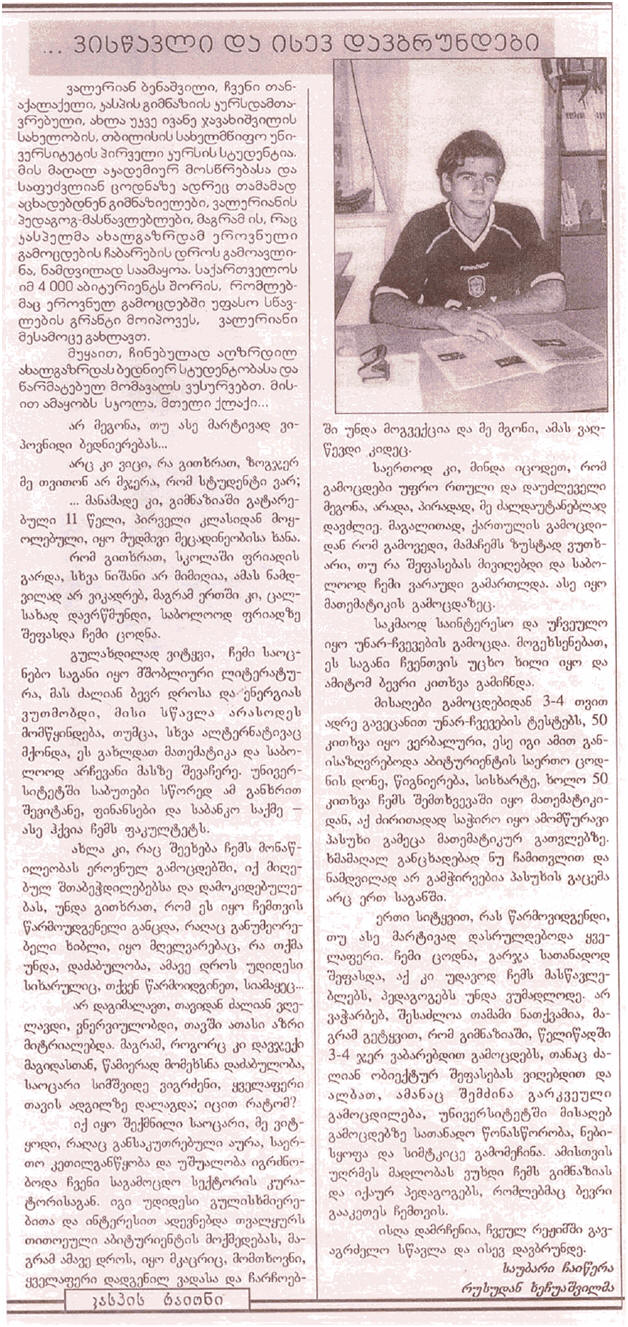 ... ვისწავლი და ისევ დავბრუნდები
ვალერიან ბენაშვილი, ჩვენი თან-
აქალაქელი, კასპის გიმნაზიის კურსდამთა-
ვრებული, ახლა უკვე ივანე ჯავახიშვილის
სახელობის, თბილისის სახელმწიფო უნი-
ვერსიტეტის პირველი კურსის სტუდენტია.
მის მაღალ აკადემიურ მოსწრებასა და
საფუძვლიან ცოდნაზე ადრეც თამამად
აცხადებდნენ გიმნაზიელები, ვალერიანის
პედაგოგ-მასწავლებლები, მაგრამ ის, რაც
კასპელმა ახალგაზრდამ ეროვნული
გამოცდების ჩაბარების დროს გამოავლი-
ნა, ნამდვილად საამაყოა. საქართველოს
იმ 4 000 აბიტურიენტს შორის, რომლებ-
მაც ეროვნულ გამოცდებში უფასო სწავ-
ლების გრანტი მოიპოვეს, ვალერიანი
მესამოცე გახლავთ.
მუყაით, ჩინებულად აღზრდილ
ახალგაზრდას ბედნიერ სტუდენტობასა და
წარმატებულ მომავალს ვუსურვებთ. მის-
ით ამაყობს სკოლა, მთელი ქლაქი...
არ მეგონა, თუ ასე მარტივად ვი-
პოვნიდი ბედნიერებას...
არც კი ვიცი, რა გითხრათ, ზოგჯერ
მე თვითონ არ მჯერა, რომ სტუდენტი ვარ;
... მანამადე კი, გიმნაზიაში გატარე-
ბული 11 წელი, პირველი კლასიდან მოყ-
ოლებული, იყო მუდმივი მეცადინეობისა ხანა.
რომ გითხრათ, სკოლაში ფრიადის
გარდა, სხვა ნიშანი არ მიმიღია, ამას ნამდ-
ვილად არ ვიკადრებ, მაგრამ ერთში კი, ცალ-
სახად დავრწმუნდი, საბოლოოდ ფრიადზე
შეფასდა ჩემი ცოდნა.
გულახდილად ვიტყვი, ჩემი საოც-
ნებო საგანი იყო მშობლიური ლიტერატუ-
რა, მას ძალიან ბევრ დროსა და ენერგიას
ვუთმობდი, მისი სწავლა არასოდეს
მომწყინდება, თუმცა, სხვა ალტერნატივაც
მქონდა, ეს გახლდათ მათემატიკა და საბო-
ლოოდ არჩევანი მასზე შევაჩერე. უნივერ-
სიტეტში საბუთები სწორედ ამ განხრით
შევიტანე, ფინანსები და საბანკო საქმე –
ასე ჰქვია ჩემს ფაკულტეტს.
ახლა კი, რაც შეეხება ჩემს მონაწ-
ილეობას ეროვნულ გამოცდებში, იქ მიღ-
ებულ შთაბეჭდილებებსა და დამოკიდებულე-
ბას, უნდა გითხრათ, რომ ეს იყო ჩემთვის
წარმოუდგენელი განცდა, რაღაც განუმეორე-
ბელი ხიბლი, იყო მღელვარებაც, რა თქმა
უნდა, დაძაბულობა, ამავე დროს უდიდესი
სიხარულიც, თქვენ წარმოიდგინეთ, სიამაყეც...
არ დაგიმალავთ, თავიდან ძალიან ვღე-
ლავდი, ვნერვიულობდი, თავში ათასი აზრი
მიტრიალებდა. მაგრამ, როგორც კი დავჯექი
მაგიდასთან, წამიერად მომეხსნა დაძაბულობა,
საოცარი სიმშვიდე ვიგრძენი, ყველაფერი
თავის ადგილზე დალაგდა; იცით რატომ?
იქ იყო შექმნილი საოცარი, მე ვიტ-
ყოდი, რაღაც განსაკუთრებული აურა, საერ-
თო კეთილგანწყობა და უშუალობა იგრძნო-
ბოდა ჩვენი საგამოცდო სექტორის კურა-
ტორისაგან. იგი უდიდესი გულისხმიერე-
ბითა და ინტერესით ადევნებდა თვალყურს
თითოეული აბიტურიენტის მოქმედებას, მა-
გრამ ამავე დროს, იყო მკაცრიც, მომთხოვნი,
ყველაფერი დადგენილ ვადასა და ჩარჩოებ-
ში უნდა მოგვექცია და მე მგონი, ამას ვაღ-
წევდი კიდეც.
საერთოდ კი, მინდა იცოდეთ, რომ
გამოცდები უფრო რთული და დაუძლეველი
მეგონა, არადა, პირადად, მე ძალდაუტანებლად
დავძლიე. მაგალითად, ქართულის გამოცდი-
დან რომ გამოვედი, მამაჩემს ზუსტად ვუთხ-
არი, თუ რა შეფასებას მივიღებდი და საბო-
ლოოდ ჩემი ვარაუდი გამართლდა. ასე იყო
მათემატიკის გამოცდაზეც.
საკმაოდ საინტერესო და უჩვეულო
იყო უნარ-ჩვევების გამოცდა. მოგეხსენებათ,
ეს საგანი ჩვენთვის უცხო ხილი იყო და
ამიტომ ბევრი კითხვა გამიჩნდა.
მისაღები გამოცდებიდან 3-4 თვით
ადრე გავეცანით უნარ-ჩვევების ტესტებს, 50
კითხვა იყო ვერბალური, ესე იგი ამით გან-
ისაზღვრებოდა აბიტურიენტის საერთო ცოდ-
ნის დონე, წიგნიერება, სისხარტე, ხოლო 50
კითხვა ჩემს შემთხვევაში იყო მათემატიკი-
დან, აქ ძირითადად საჭირო იყო ამომწურავი
პასუხი გამეცა მათემატიკურ გათვლებზე.
ხმამაღალ განცხადებად ნუ ჩამითვლით და
ნამდვილად არ გამჭირვებია პასუხის გაცემა
არც ერთ საგანში.
ერთი სიტყვით, რას წარმოვიდგენდი,
თუ ასე მარტივად დასრულდებოდა ყვე-
ლაფერი. ჩემი ცოდნა, გარჯა სათანადოდ
შეფასდა, აქ კი უდავოდ ჩემს მასწავლე-
ბლებს, პედაგოგებს უნდა ვუმადლოდე. არ
ვაჭარბებ, შესაძლოა თამამი ნათქვამია, მა-
გრამ გეტყვით, რომ გიმნაზიაში, წელიწადში
3-4 ჯერ ვაბარებდით გამოცდებს, თანაც ძა-
ლიან ობიექტურ შეფასებას ვიღებდით და
ალბათ, ამანაც შემძინა გარკვეული
გამოცდილება, უნივერსიტეტში მისაღებ
გამოცდებზე სათანადო წონასწორობა, ნები-
სყოფა და სიმტკიცე გამომეჩინა. ამისთვის
უღრმეს მადლობას ვუხდი ჩემს გიმნაზიას
და იქაურ პედაგოგებს, რომლებმაც ბევრი
გააკეთეს ჩემთვის.
ისღა დამრჩენია, ჩვეულ რეჟიმში გავ-
აგრძელო სწავლა და ისევ დავბრუნდე.
საუბარი ჩაიწერა
რუსუდან ხეჩუაშვილმა
კასპის რაიონი